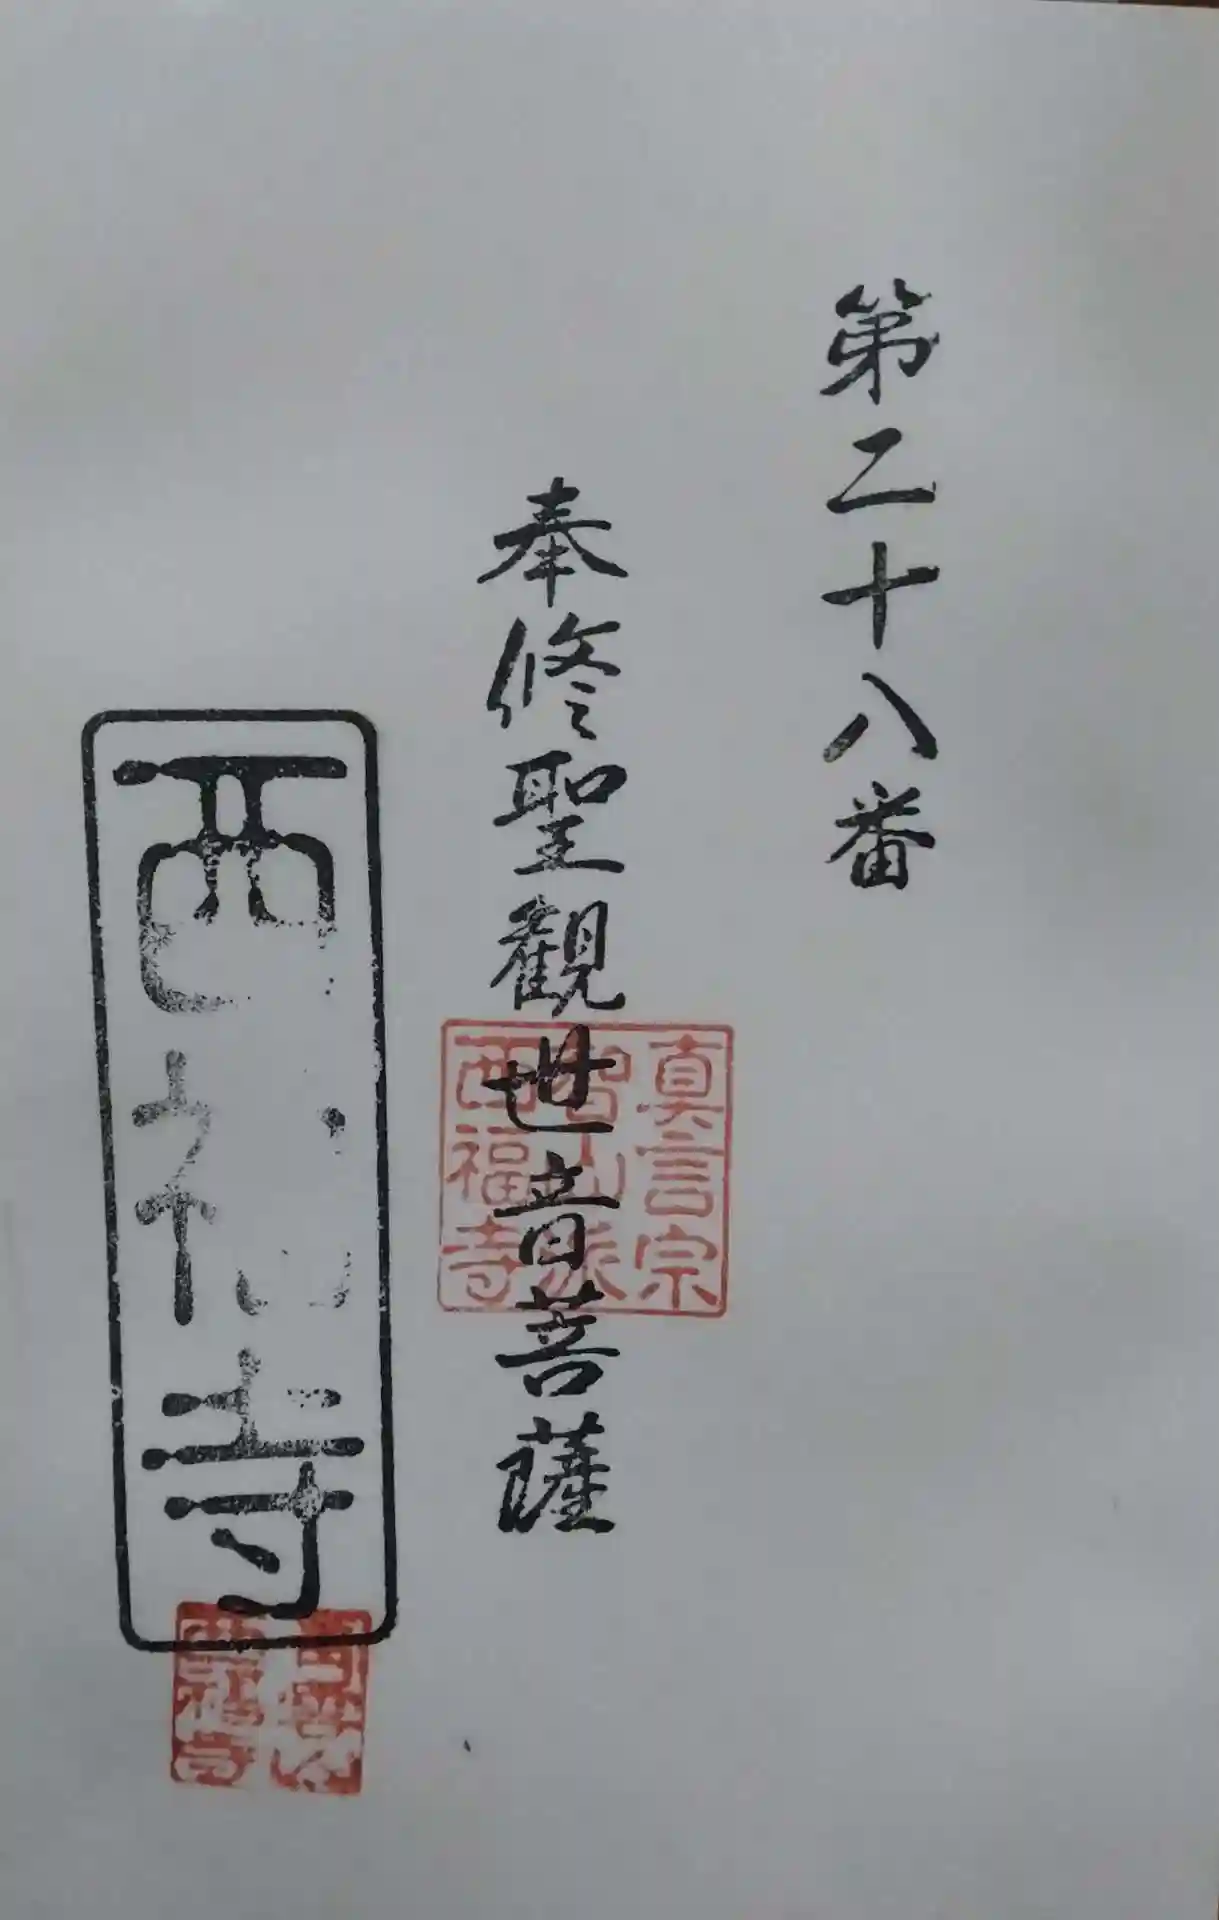 第二十八番
奉修聖觀世音菩薩
真言宗
智山派
西福寺
西福寺